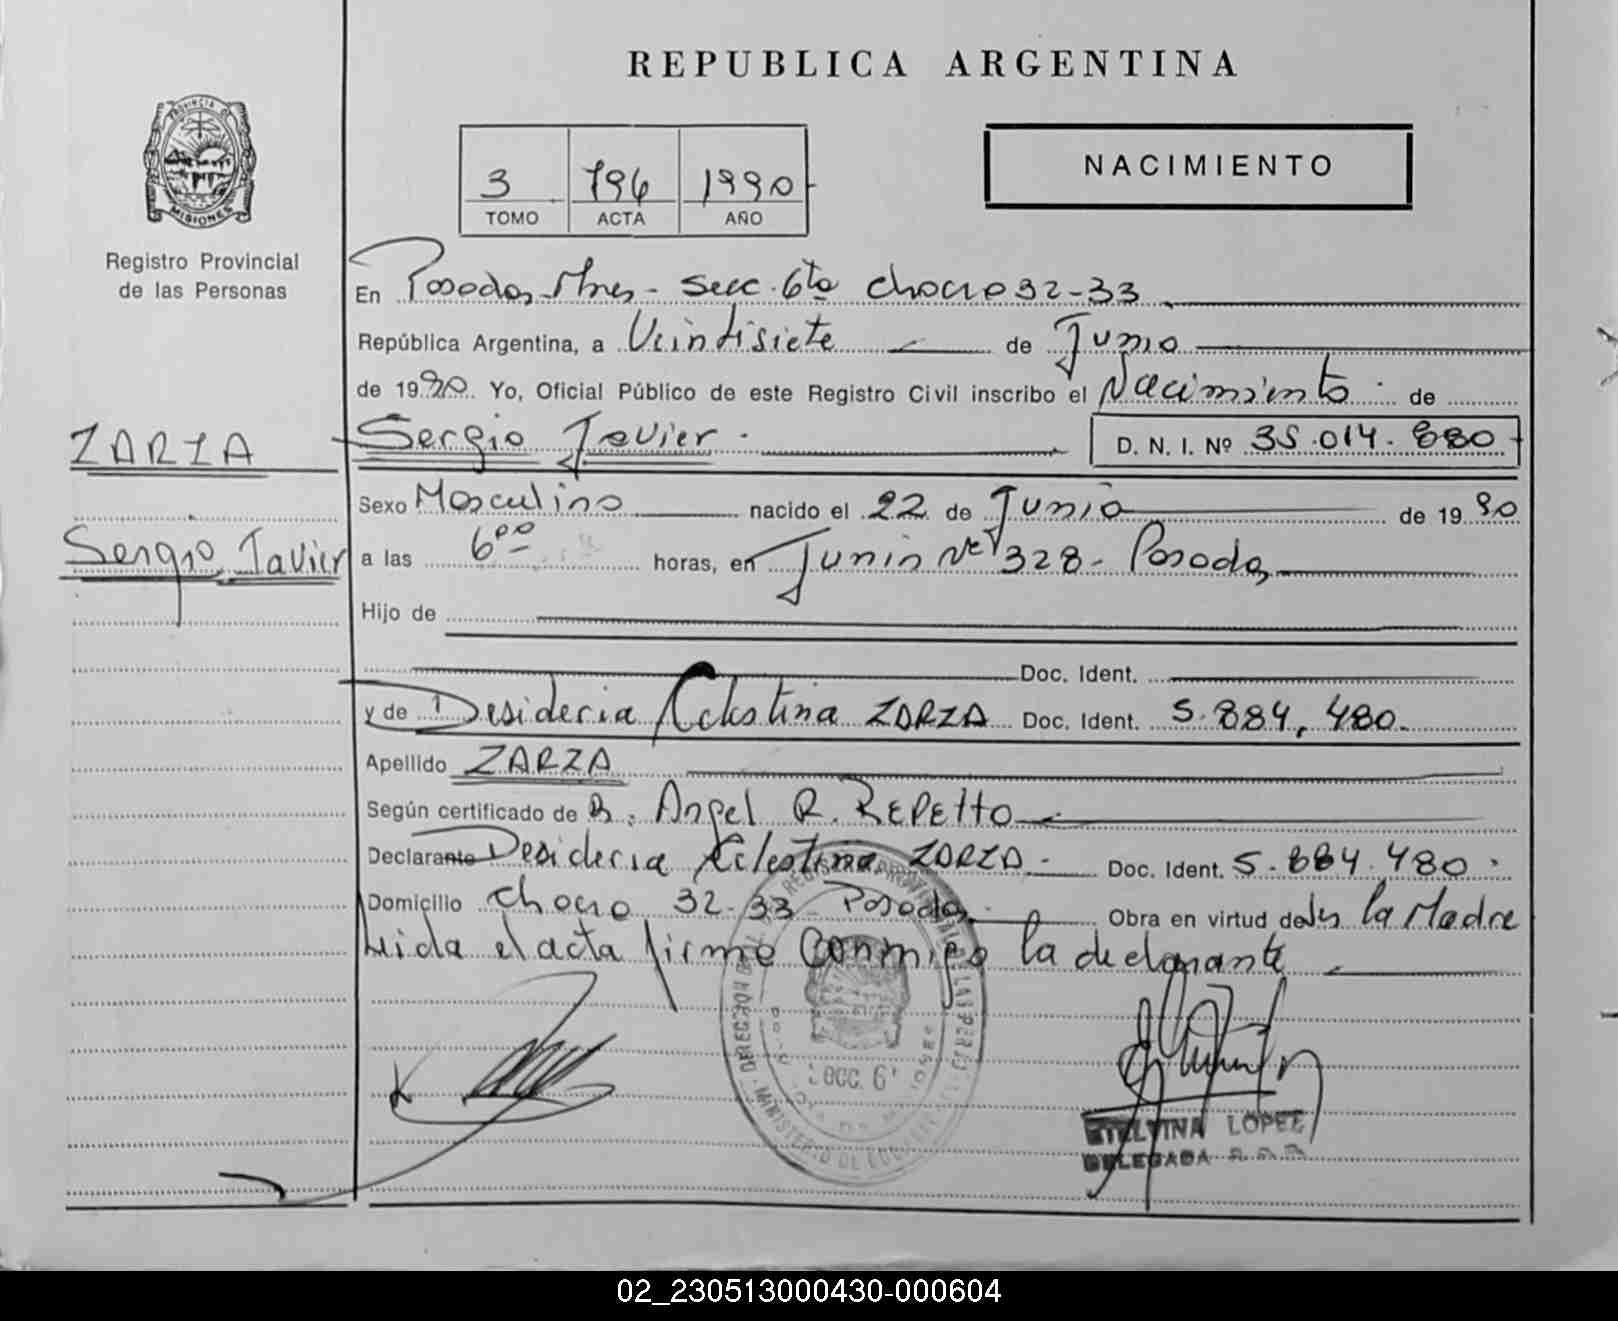 REPUBLICA ARGENTINA
PROVINCIA DE
MISIONES
Registro Provincial
de las Personas
3 796 1990
TOMO ACTA AÑO
NACIMIENTO
En Posadas, Mnes - Secc. 6ta Chacra 32-33
República Argentina, a Veintisiete de Junio
de 1990 Yo, Oficial Público de este Registro Civil inscribo el Nacimiento de
ZARZA Sergio Javier D. N. I. Nº 35.014.880
Sexo Masculino nacido el 22 de Junio de 1990
Sergio Javier a las 6 00 horas, en Junin Nº 328 - Posadas
Hijo de
Doc. Ident.
y de Desideria Celestina ZARZA Doc. Ident. 5.884,480.
Apellido ZARZA
Según certificado de Dr. Angel R. REPEttO
Declarante Desideria Celestina ZARZA - Doc. Ident. 5.884.480.
Domicilio Chacra 32-33 Posadas Obra en virtud de la Madre
Leida el acta firma Conmigo la declarante
SECC. 6ª
ETELVINA LOPEZ
DELEGADA
02_230513000430-000604